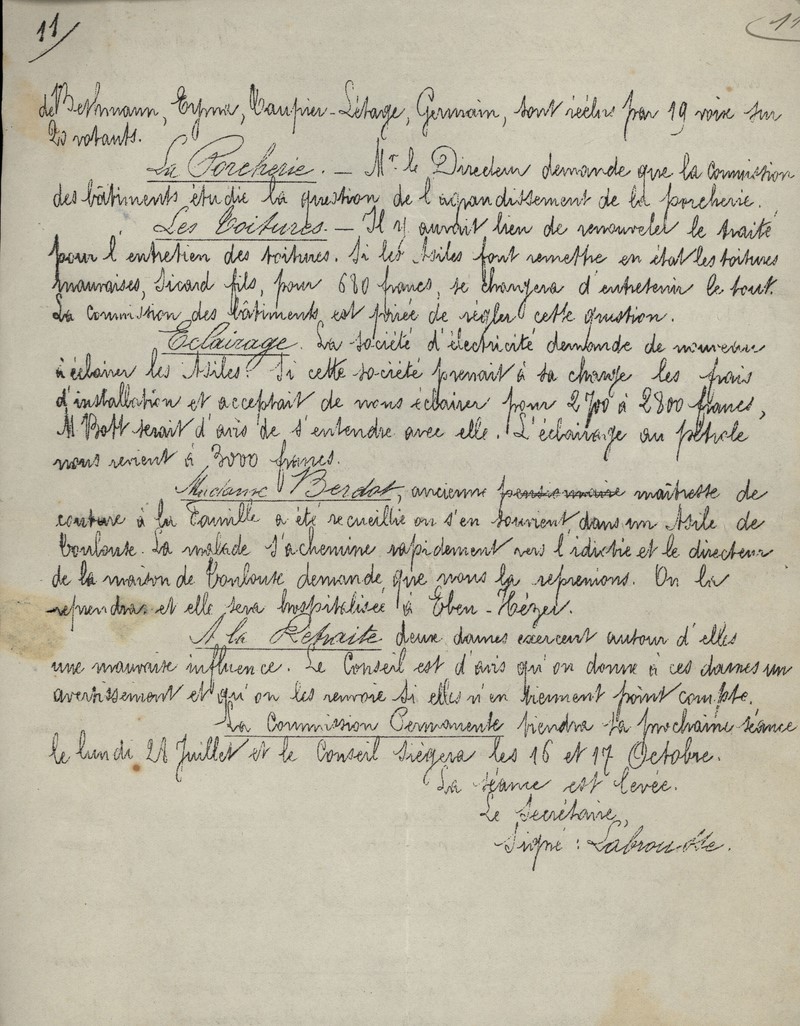 11
11
de Bethmann, Eyma, Taupier-Létage, Germain, sont réélus par 19 voix sur
20 votants.
La Porcherie. — Mr. le Directeur demande que la Commission
des bâtiments étudie la question de l'agrandissement de la porcherie.
Les Toitures. — Il y aurait lieu de renouveler le traité
pour l'entretien des toitures. Si les Asiles font remettre en état les toitures
mauvaises, Sicard fils, pour 680 francs, se chargera d'entretenir le tout.
La Commission des bâtiments est priée de régler cette question.
Eclairage. La société d'électricité demande de nouveau
à éclairer les Asiles. Si cette société prenait à sa charge les frais
d'installation et acceptait de nous éclairer pour 2700 à 2800 francs,
M Bott serait d'avis de s'entendre avec elle. L'éclairage au pétrole
nous revient à 3000 francs.
Madame Berdot, ancienne pensionnaire maîtresse de
couture à la Famille a été recueillie on s'en souvient dans un Asile de
Toulouse. La malade s'achemine rapidement vers l'idiotie et le directeur
de la maison de Toulouse demande que nous la reprenions. On la
reprendra et elle sera hospitalisée à Eben-Hézer.
A la Retraite deux dames exercent autour d'elles
une mauvaise influence. Le Conseil est d'avis qu'on donne à ces dames un
avertissement et qu'on les renvoie si elles n'en tiennent point compte.
La Commission Permanente tiendra sa prochaine séance
le lundi 28 Juillet et le Conseil siègera les 16 et 17 Octobre.
La séance est levée.
Le Secrétaire,
Signé : Labrousse.